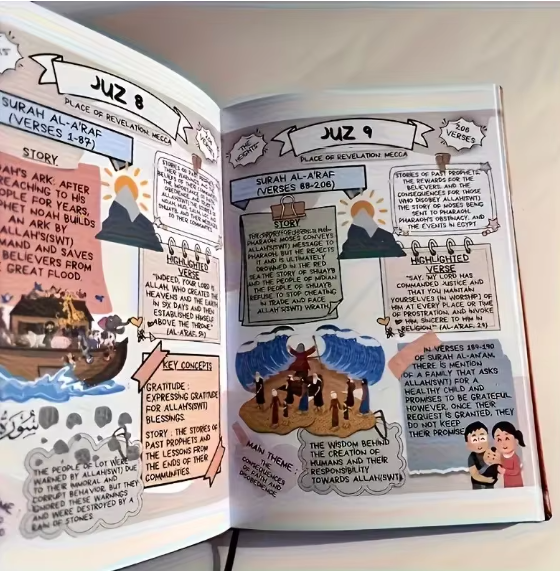 JUZ 8
PLACE OF REVELATION: MECCA
SURAH AL-A'RAF
(VERSES 1-87)
STORY
AH'S ARK: AFTER
REACHING TO HIS
OPLE FOR YEARS,
PHET NOAH BUILDS
AN ARK BY
ALLAH'S(SWT)
MAND AND SAVES
BELIEVERS FROM
GREAT FLOOD.
HIGHLIGHTED
VERSE
"INDEED, YOUR LORD IS
ALLAH, WHO CREATED THE
HEAVENS AND THE EARTH
IN SIX DAYS AND THEN
ESTABLISHED HIMSELF
ABOVE THE THRONE"
(AL-A'RAF, 54)
KEY CONCEPTS
GRATITUDE :
EXPRESSING GRATITUDE
FOR ALLAH'S(SWT)
BLESSINGS.
STORY : THE STORIES OF
PAST PROPHETS AND
THE LESSONS FROM
THE ENDS OF THEIR
COMMUNITIES.
THE PEOPLE OF LOT WERE
WARNED BY ALLAH(SWT) DUE
TO THEIR IMMORAL AND
CORRUPT BEHAVIOR, BUT THEY
IGNORED THESE WARNINGS
AND WERE DESTROYED BY A
RAIN OF STONES.
JUZ 9
PLACE OF REVELATION: MECCA
THE
HEIGHTS
206
VERSES
SURAH AL-A'RAF
(VERSES 88-206)
STORY
PHARAOH: MOSES CONVEYS
ALLAH'S(SWT) MESSAGE TO
PHARAOH, BUT HE REJECTS
IT AND IS ULTIMATELY
DROWNED IN THE RED
SEA. THE STORY OF SHUAYB
AND THE PEOPLE OF MIDIAN
THE PEOPLE OF SHUAYB
REFUSE TO STOP CHEATING
IN TRADE AND FACE
ALLAH'S(SWT) WRATH.
STORIES OF PAST PROPHETS,
THE REWARDS FOR THE
BELIEVERS, AND THE
CONSEQUENCES FOR THOSE
WHO DISOBEY ALLAH(SWT).
THE STORY OF MOSES BEING
SENT TO PHARAOH,
PHARAOH'S OBSTINACY, AND
THE EVENTS IN EGYPT
HIGHLIGHTED
VERSE
"SAY, 'MY LORD HAS
COMMANDED JUSTICE AND
THAT YOU MAINTAIN
YOURSELVES (IN WORSHIP) OF
HIM AT EVERY PLACE OR TIME
OF PROSTRATION, AND INVOKE
HIM, SINCERE TO HIM IN
RELIGION'" (AL-A'RAF, 29)
IN VERSES 189-190
OF SURAH AL-AN'AM,
THERE IS MENTION
OF A FAMILY THAT ASKS
ALLAH(SWT) FOR A
HEALTHY CHILD AND
PROMISES TO BE GRATEFUL.
HOWEVER, ONCE THEIR
REQUEST IS GRANTED, THEY
DO NOT KEEP
THEIR PROMISE.
MAIN THEME :
THE
CONSEQUENCES
OF FAITH AND
THE WISDOM BEHIND
THE CREATION OF
HUMANS AND THEIR
RESPONSIBILITY
TOWARDS ALLAH(SWT)